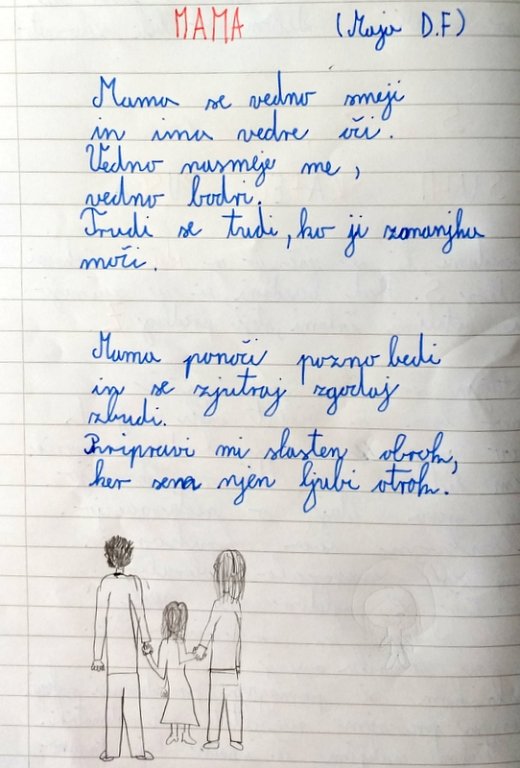 MAMA (Maja D.F)
Mama se vedno smeji
in ima vedre oči.
Vedno nasmeje me,
vedno bodri.
Trudi se tudi, ko ji zmanjka
moči.
Mama ponoči pozno bedi
in se zjutraj zgodaj
zbudi.
Pripravi mi slasten obrok,
ker sem njen ljubi otrok.